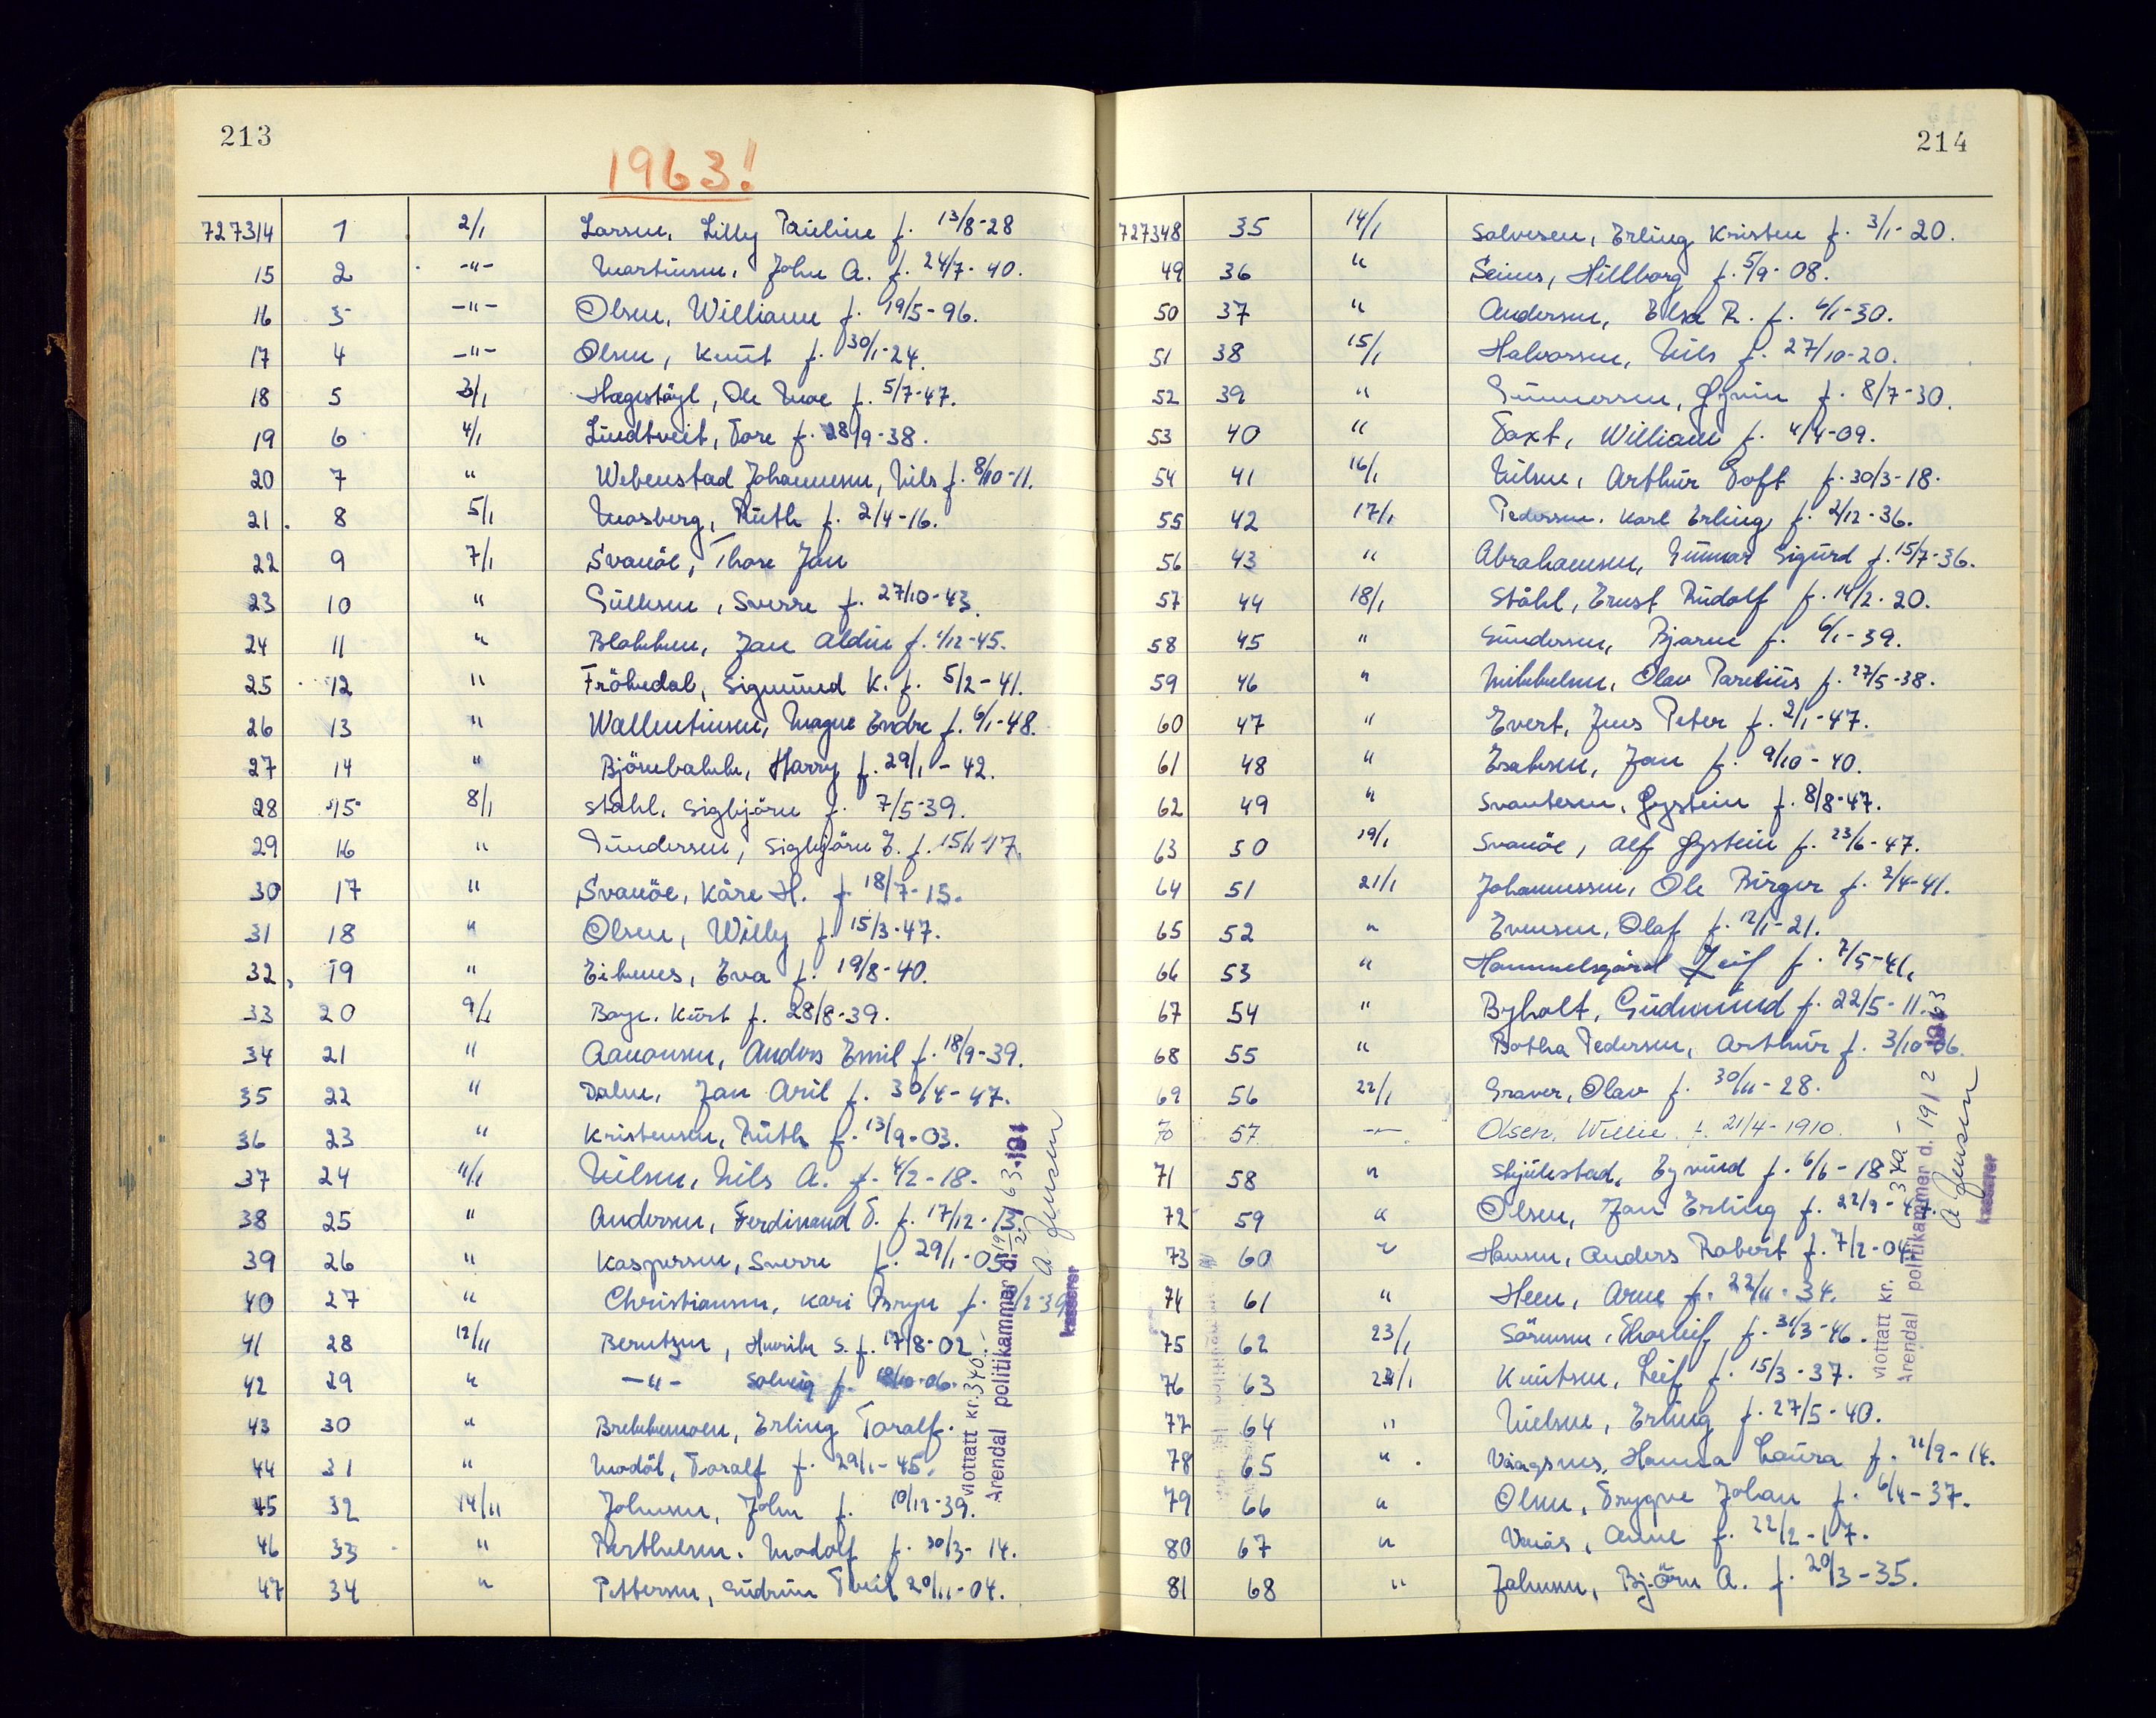 213
1963!
727314 1 2/1 Larsen, Lilly Pauline f. 13/8-28
15 2 -"- Martinsen, John A. f. 24/7-40.
16 3 -"- Olsen, William f. 19/5-96.
17 4 -"- Olsen, Knut f. 30/1-24.
18 5 3/1 Hegestøyl, Ole Moe f. 5/7-47.
19 6 4/1 Lindtveit, Tore f. 28/9-38.
20 7 " Webenstad Johannesen, Nils f. 8/10-11.
21. 8 5/1 Mosberg, Ruth f. 2/4-16.
22 9 7/1 Svanöe, Thore Jan
23 10 " Gullsen, Sverre f. 27/10-43.
24 11 " Blakken, Jan Aldin f. 1/12-45.
25 12 " Fröhedal, Sigmund K. f. 5/2-41.
26 13 " Wallentinsen, Magne Endre f. 6/1-48.
27 14 " Björnebakk, Harry f. 29/1-42.
28 15 8/1 Stahl, Sigbjörn f. 7/5-39.
29 16 " Gundersen, Sigbjörn E. f. 15/1-17.
30 17 " Svanöe, Kåre H. f. 18/7-15.
31 18 " Olsen, Willy f. 15/3-47.
32, 19 " Eikenes, Eva f. 19/8-40.
33 20 9/1 Boye, Kurt f. 28/8-39.
34 21 " Aanonsen, Anders Emil f. 18/9-39.
35 22 " Dalen, Jan Aril f. 30/4-47.
36 23 " Kristensen, Ruth f. 13/9-03.
37 24 11/1 Nilsen, Nils A. f. 4/2-18.
38 25 " Andersen, Ferdinand T. f. 17/12-13.
39 26 " Kaspersen, Sverre f. 29/1-03
40 27 " Christiansen, Kari Bryn f. /2-39
41 28 12/11 Berntzen, Henrik S. f. 17/8-02.
42 29 " -"- Solveig f. 18/10-06.
43 30 " Brekkemoen, Erling Toralf.
44 31 " Modål, Toralf f. 29/1-45.
45 32 14/11 Johnsen, John f. 10/12-39.
46 33 " Berthelsen, Modolf f. 30/3-14.
47 34 " Pettersen, Gudrun Tveit 20/11-04.
Mottatt kr. 340.-
Arendal politikammer d. 19/2 1963
A Jensen
kasserer
214
727348 35 14/1 Salvesen, Erling Kristen f. 3/1-20.
49 36 " Seines, Hillborg f. 5/9-08.
50 37 " Andersen, Elsa R. f. 6/1-30.
51 38 15/1 Halvorsen, Nils f. 27/10-20.
52 39 " Gunnersen, Gyvin f. 8/7-30.
53 40 " Toxt, William f. 4/4-09.
54 41 16/1 Nilsen, Arthur Toft f. 30/3-18.
55 42 17/1 Pedersen, Karl Erling f. 2/12-36.
56 43 " Abrahamsen, Gunnar Sigurd f. 15/7-36.
57 44 18/1 Ståhl, Ernst Rudolf f. 14/2-20.
58 45 " Gundersen, Bjarne f. 6/1-39.
59 46 " Mikkelsen, Olav Parelius f. 27/5-38.
60 47 " Evert, Jens Peter f. 2/1-47.
61 48 " Esaksen, Jan f. 9/10-40.
62 49 " Svantesen, Øystein f. 8/8-47.
63 50 19/1 Svanöe, Alf Øystein f. 23/6-47.
64 51 21/1 Johannessen, Ole Birger f. 2/4-41.
65 52 " Evensen, Olaf f. 12/1-21.
66 53 " Hammelsgård Leif f. 7/5-41.
67 54 " Byholt, Gudmund f. 22/5-11.
68 55 " Botha Pedersen, Arthur f. 3/10-06.
69 56 22/1 Graver, Olav f. 30/11-28.
70 57 -"- Olsen, Willie f. 21/4-1910.
71 58 " Skjulestad, Eyvind f. 6/6-18
72 59 " Olsen, Jan Erling f. 22/9-47.
73 60 " Hansen, Anders Robert f. 7/2-04.
74 61 " Heen, Arne f. 22/11-34.
75 62 23/1 Sörensen, Thorleif f. 31/3-46.
76 63 23/1 Knutsen, Leif f. 15/3-37.
77 64 " Nielsen, Erling f. 27/5-40.
78 65 " Vaagsnes, Hanna Laura f. 21/9-14.
79 66 " Olsen, Trygve Johan f. 6/4-37.
80 67 " Vaaås, Anne f. 22/2-17.
81 68 " Johnsen, Björn A. f. 20/3-35.
Mottatt kr. 340.-
Arendal politikammer d. 19/2 1963
A Jensen
kasserer